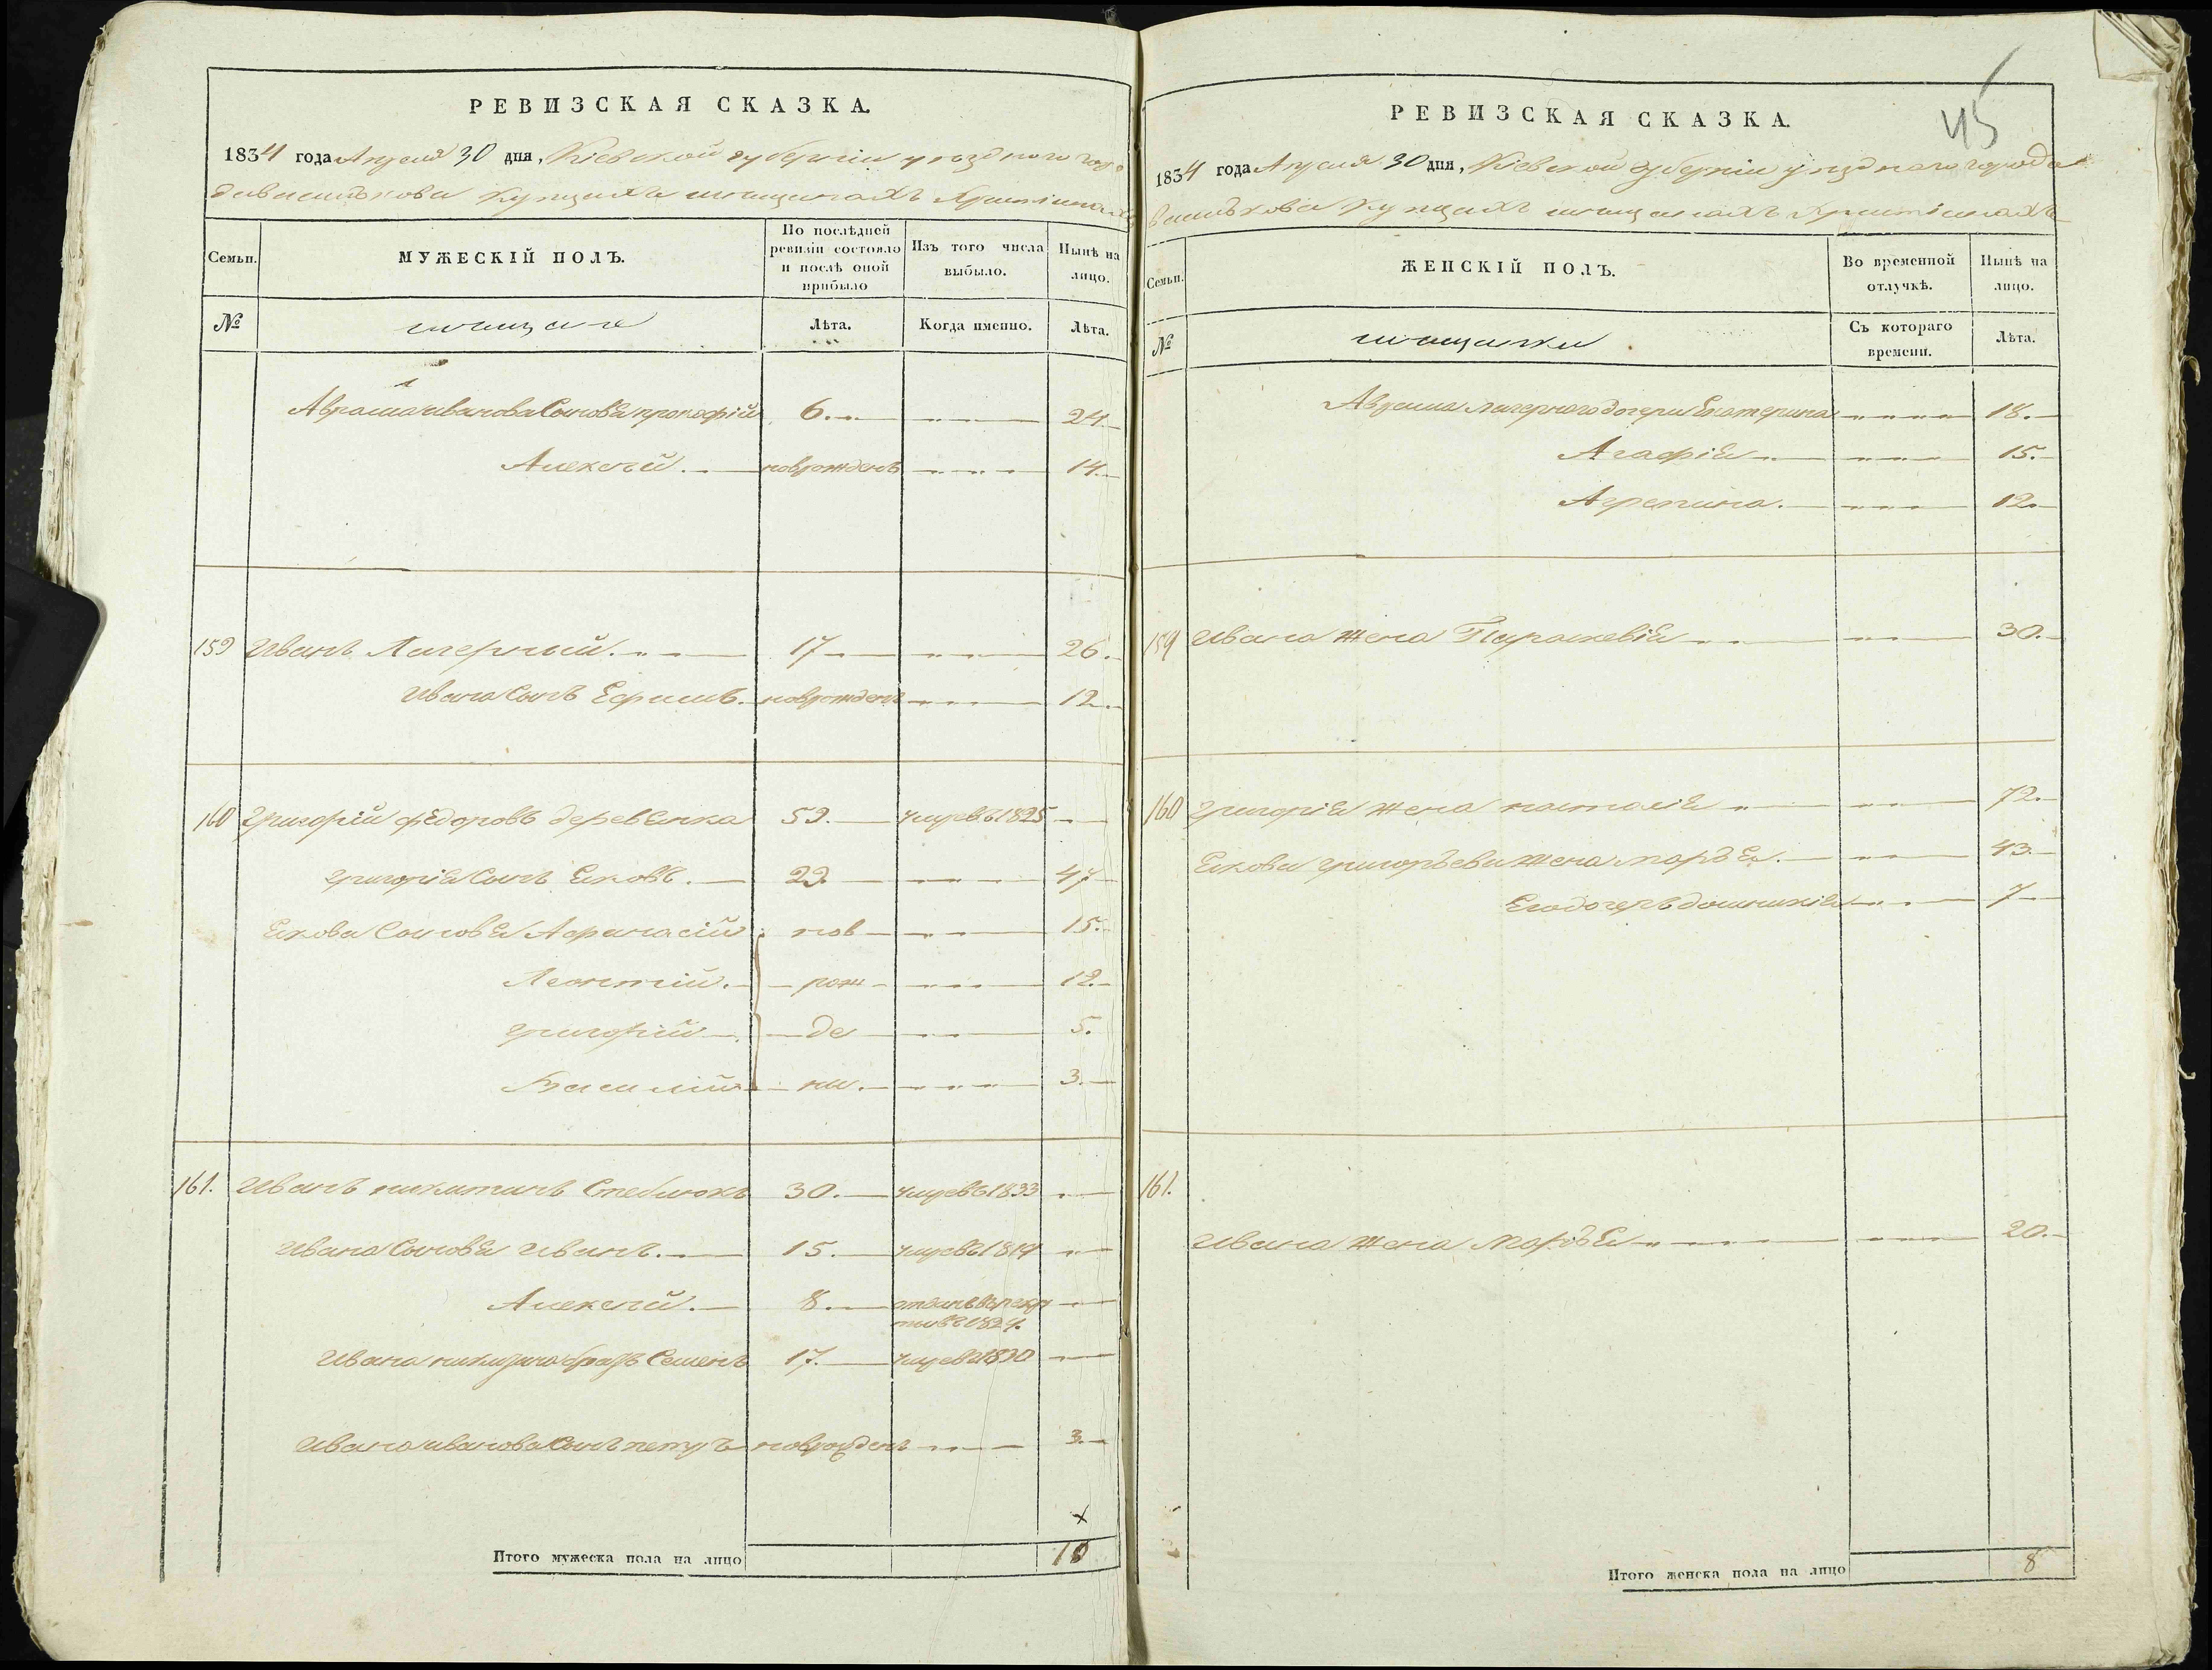 РЕВИЗСКАЯ СКАЗКА.
1834 года Апреля 30 дня, Кіевской губерніи уѣзднаго горо
да Василькова Купцахъ мещанахъ Христіянахъ
Семьи.
МУЖЕСКІЙ ПОЛЪ.
По послѣдней ревизіи состояло и послѣ оной прибыло
Изъ того числа выбыло.
Нынѣ на лицо.
№ мещане Лѣта. Когда именно. Лѣта.
Иванова Сыновя прокофій 6. 24
Алексей. новрожденъ 14.
159 Иванъ Лагерный. 17 26.
Ивана Сынъ Ефимъ. новрожденъ 12.
160 Григорій федоровъ деревянка 59. умре въ 1825
Григорія Сынъ Яковъ. 29. 47
Якова Сыновя Афанасій нов 15.
Леонтій. рож 12.
Григорій де 5.
Василій ни. 3.
161. Иванъ никитинъ Стеблюкъ 30. умре въ 1833
Ивана Сыновя Иванъ. 15. умре въ 1819
Алексей. 8. отданъ въ рекру
ты въ 1824.
Ивана никитина братъ Семенъ 17. умре въ 1830
Ивана иванова Сынъ петръ новрожденъ 3.
Итого мужеска пола на лицо 10
45
РЕВИЗСКАЯ СКАЗКА.
1834 года Апреля 30 дня, Кіевской губерніи уѣзднаго города
Василькова Купцахъ мещанахъ Христіянахъ
Семьи.
ЖЕНСКІЙ ПОЛЪ.
Во временной отлучкѣ.
Нынѣ на лицо.
№ мещанки Съ котораго времени. Лѣта.
Лагерного дочери Екатерина 18.
Агафія 15.
Агрепина. 12.
159 Ивана жена Параскевія 30.
160 Григорія жена наталія 72.
Якова григорьева жена марья. 43.
Его дочерь домникія 7
161.
Ивана жена Марья 20.
Итого женска пола на лицо 8